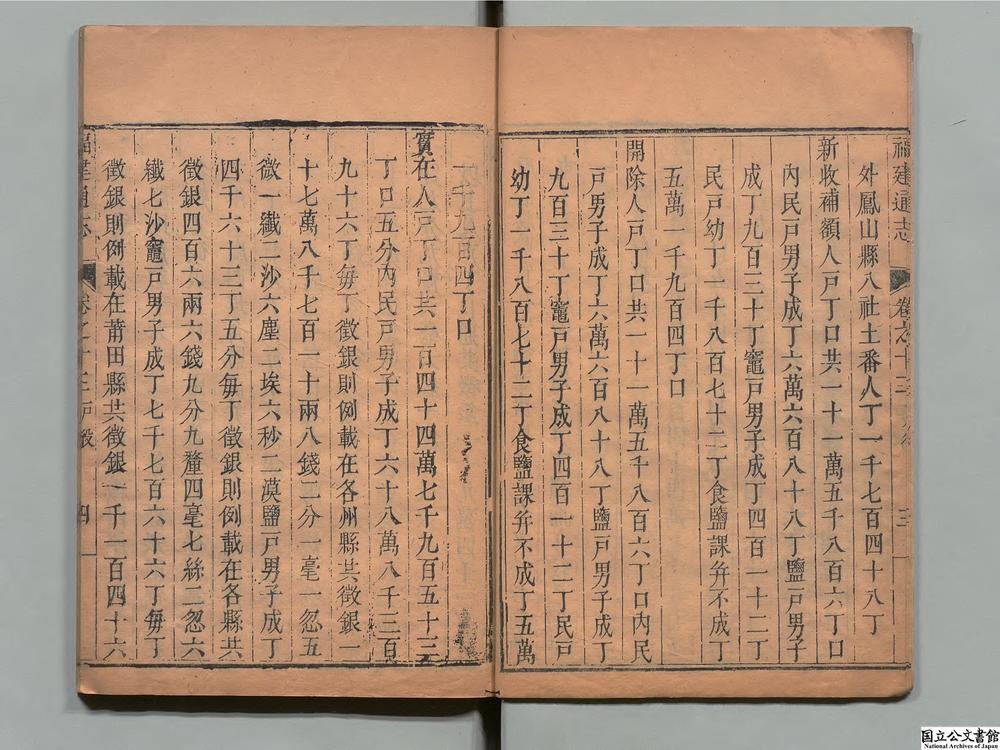 福建通志
外鳳山縣八社土番人丁一千七百四十八丁
新收補額人戸丁口共一十一萬五千八百六丁口
內民戸男子成丁六萬六百八十八丁鹽戸男子
成丁九百三十丁竈戸男子成丁四百一十二丁
民戸幼丁一千八百七十二丁食鹽課弁不成丁
五萬一千九百四丁口
開除人戸丁口共一十一萬五千八百六丁口內民
戸男子成丁六萬六百八十八丁鹽戸男子成丁
九百三十丁竈戸男子成丁四百一十二丁民戸
幼丁一千八百七十二丁食鹽課弁不成丁五萬
一千九百四丁口
實在人戸丁口共一百四十四萬七千九百五十三
丁口五分內民戸男子成丁六十八萬八千三百
九十六丁每丁徵銀則例載在各州縣共徵銀一
十七萬八千七百一十兩八錢二分一毫一忽五
微一纖二沙六塵二埃六秒二漠鹽戸男子成丁
四千六十三丁五分每丁徵銀則例載在各縣共
徵銀四百六兩六錢九分九釐四毫七絲二忽六
纖七沙竈戸男子成丁七千七百六十六丁每丁
徵銀則例載在莆田縣共徵銀一千一百四十六
福建通志
卷之十三戸役
四
國立公文書館
National Archives of Japan